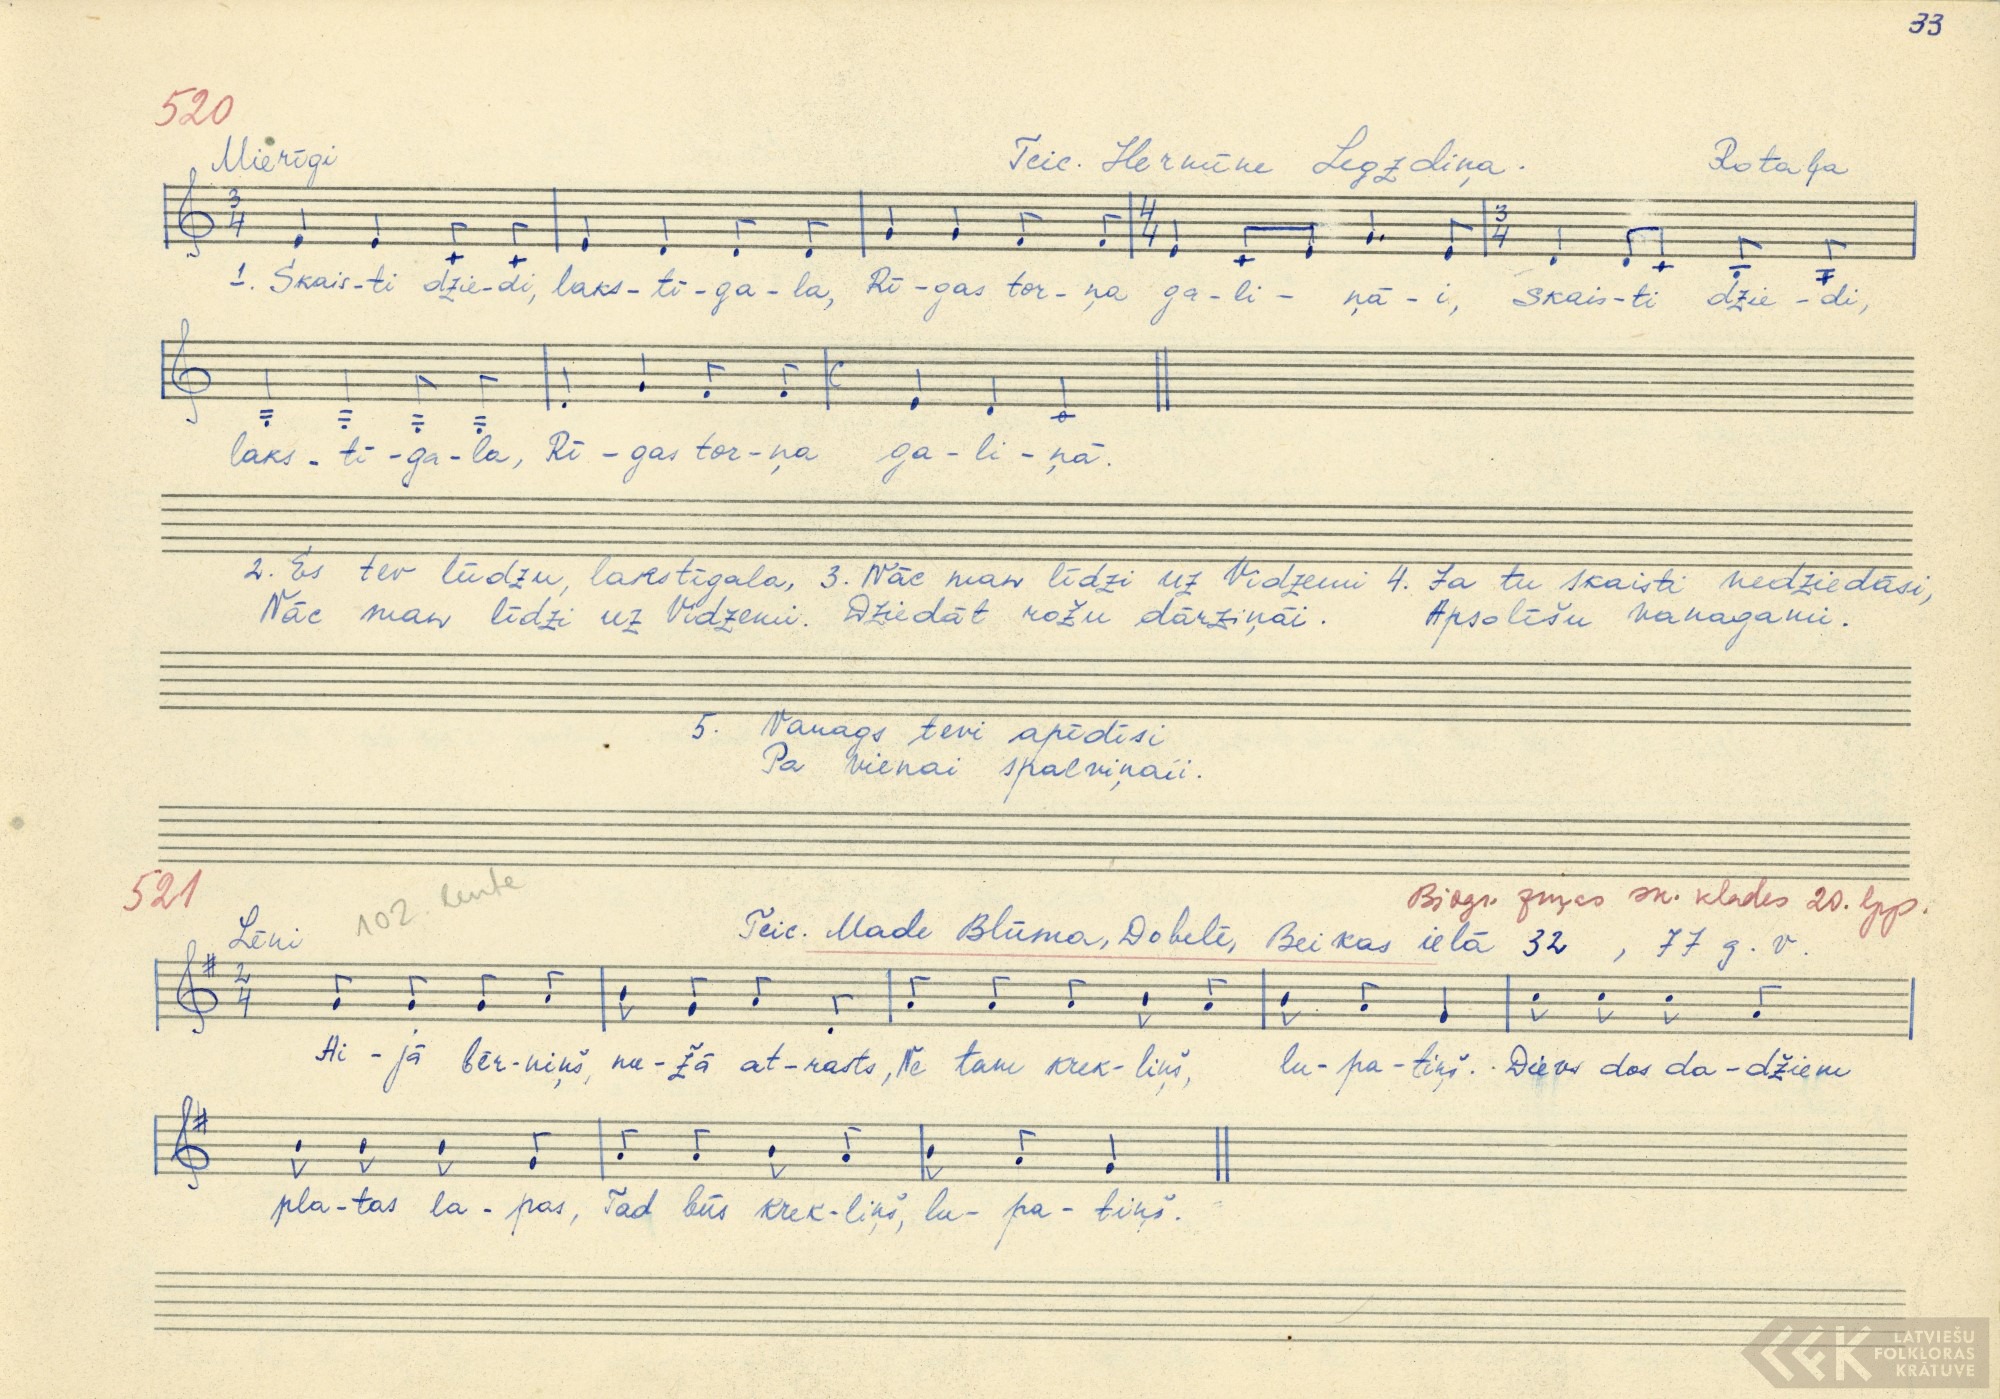 33
520
Mierīgi Teic. Hermīne Legzdiņa. Rotaļa
3/4 4/4 3/4
1. Skais-ti dzie-di, laks-tī-ga-la, Rī-gas tor-ņa ga-li-ņā-i, Skais-ti dzie-di,
C
laks-tī-ga-la, Rī-gas tor-ņa ga-li-ņā.
2. Es tev lūdzu, lakstīgala, 3. Nāc man līdzi uz Vidzemi 4. Ja tu skaisti nedziedāsi,
Nāc man līdzi uz Vidzemi. Dziedāt rožu dārziņāi. Apsolīšu vanagami.
5. Vanags tevi apēdīsi
Pa vienai spalviņaii.
521
102. Rente
Biogr. ziņas sk. klades 20. lpp.
Lēni Teic. Made Blūma, Dobelē, Beikas ielā 32, 77 g. v.
2/4
Ai-jā bēr-niņš, me-žā at-rasts, Ne tam krek-liņš, lu-pa-tiņš. Dievs dos da-džiem
pla-tas la-pas, Tad būs krek-liņš, lu-pa-tiņš.
LATVIEŠU
FOLKLORAS
KRĀTUVE